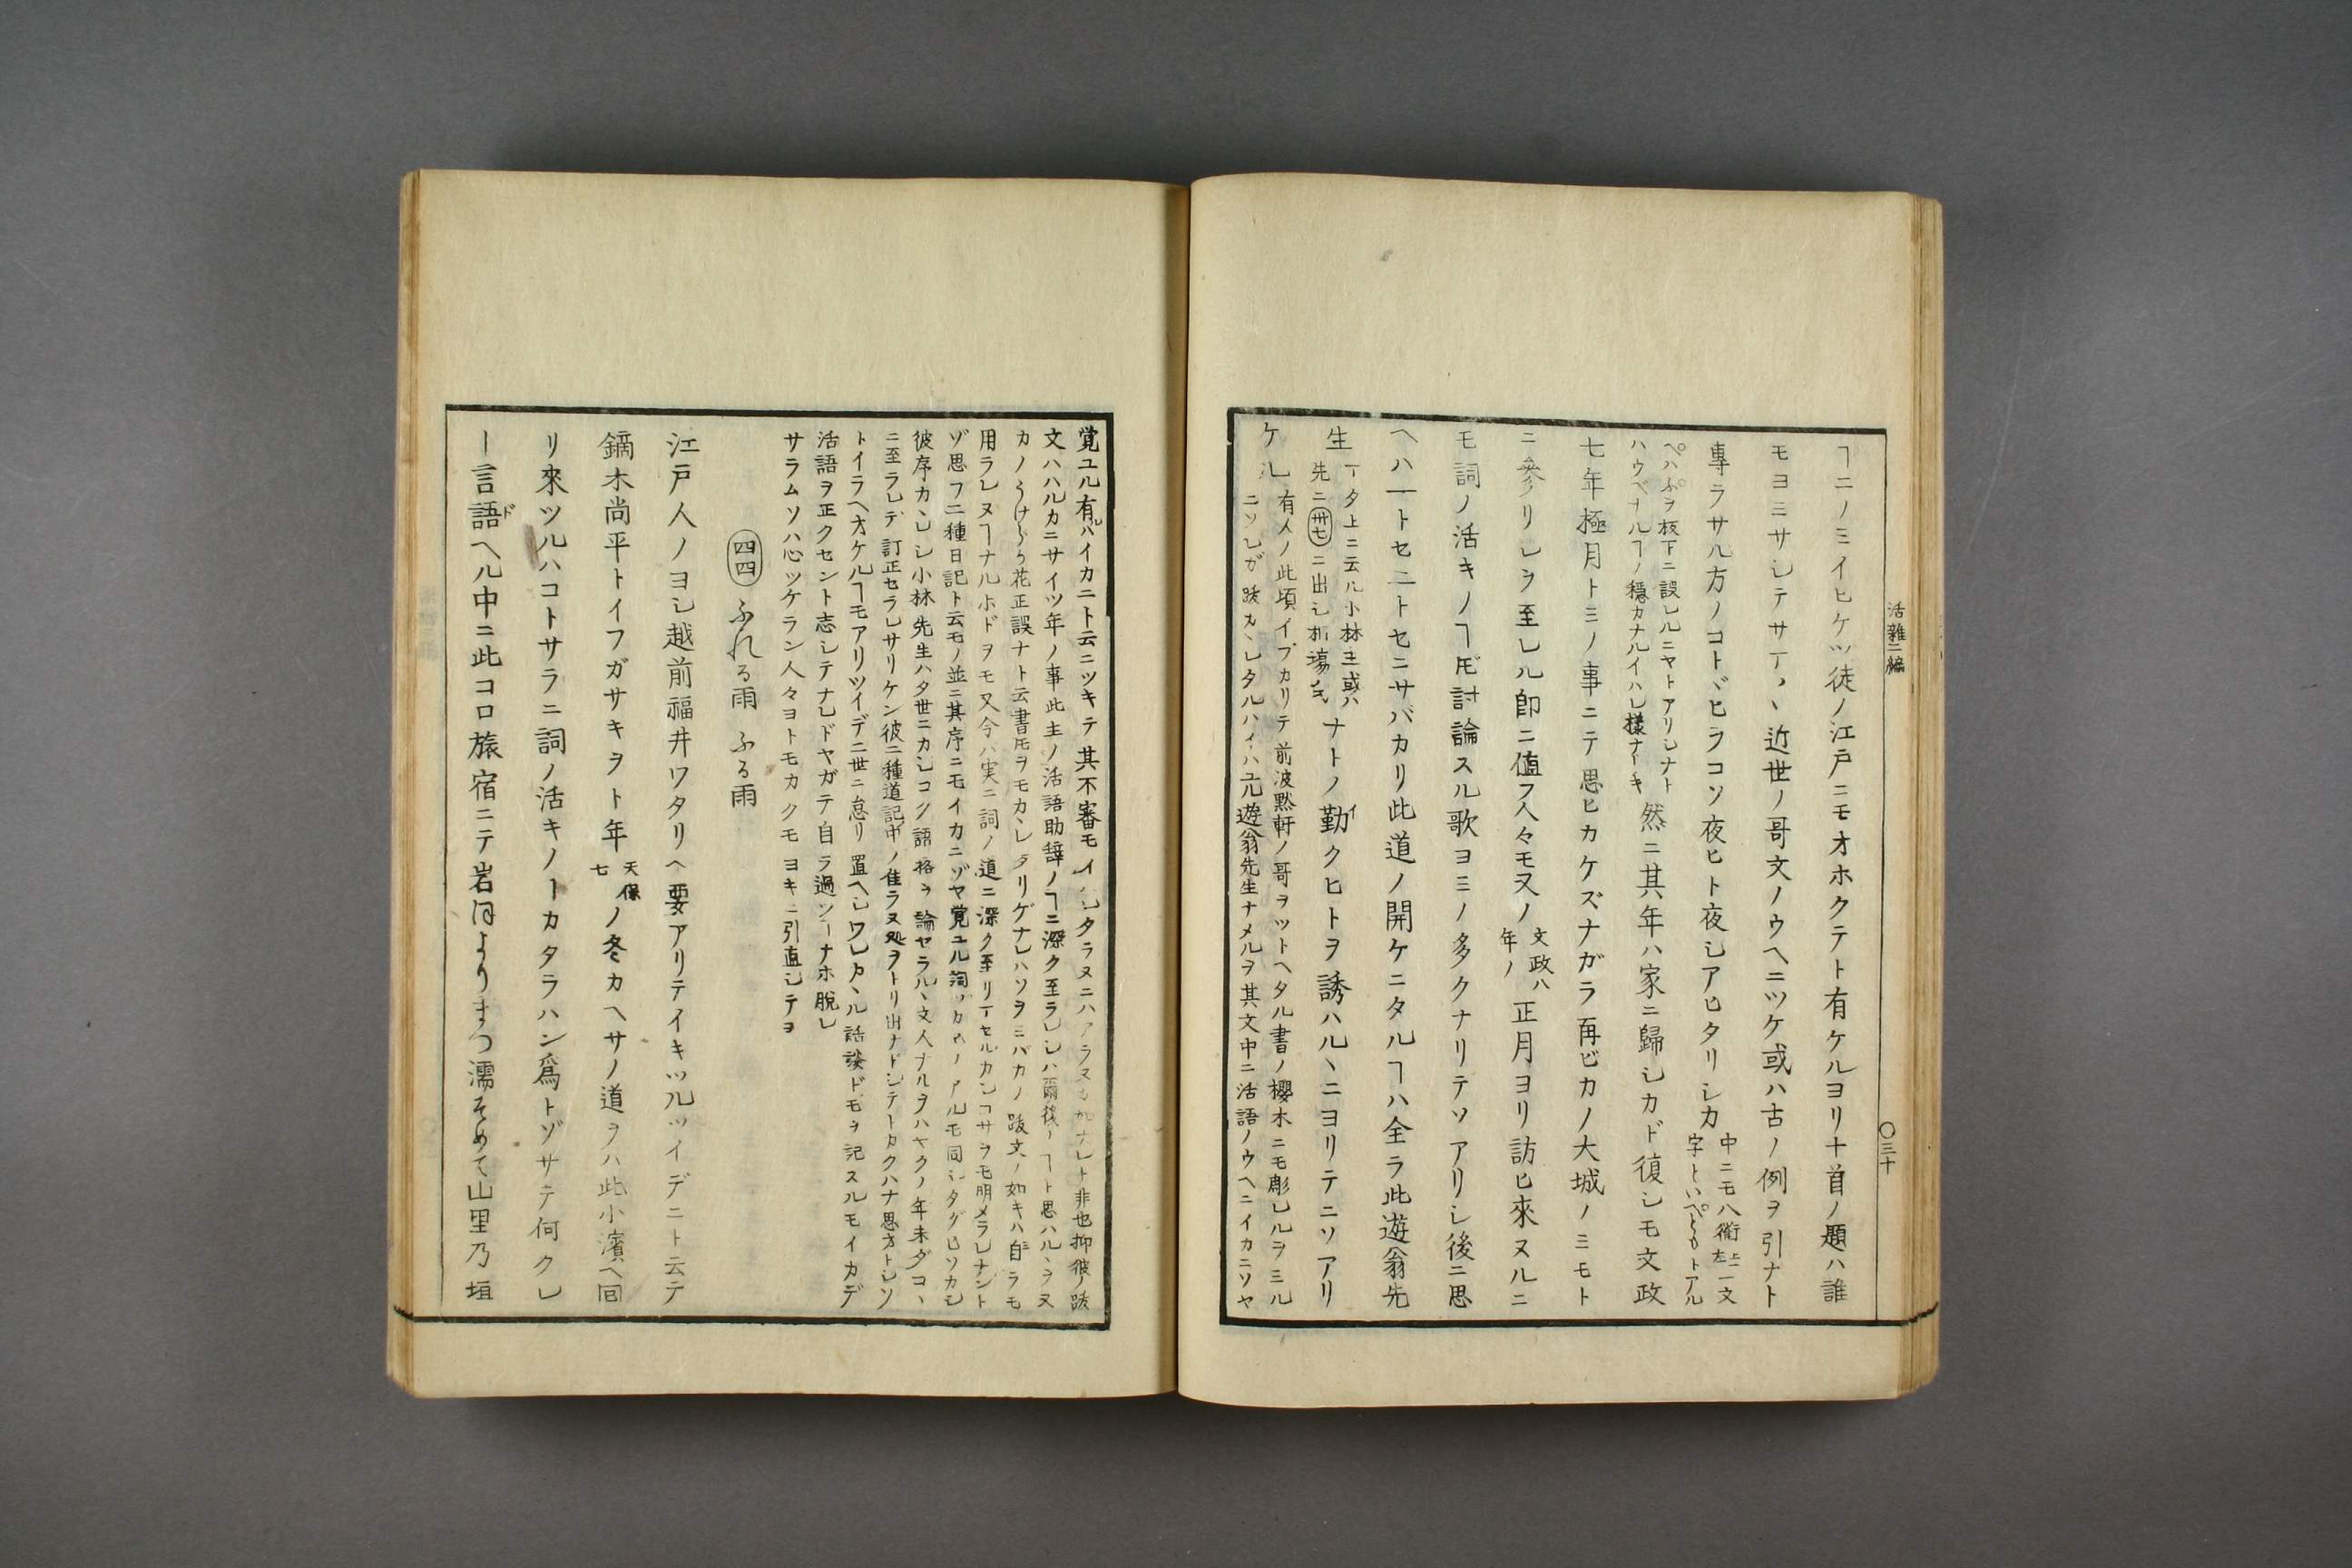 活雜三編
○三十
ヿニノミイヒケツ徒ノ江戸ニモオホクテト有ケルヨリ十首ノ題ハ誰
モヨミサシテサ丅ヽ近世ノ哥文ノウヘニツケ或ハ古ノ例ヲ引ナト
專ラサル方ノコトヾヒラコソ夜ヒト夜シアヒタリシカ
中ニモ八衢上二文
字といへともトアル
ハ板下ニ誤レルニヤトアリシナト
ハウベナルヿノ穩カナルイハレ樣ナーキ
然ニ其年ハ家ニ歸シカド復シモ文政
七年極月トミノ事ニテ思ヒカケズナガラ再ビカノ大城ノミモト
ニ參リシヲ至レル卽ニ値フ人々モ又ノ
文政八
年ノ
正月ヨリ訪ヒ來ヌルニ
モ詞ノ活キノヿ𪜈討論スル歌ヨミノ多クナリテソアリシ後ニ思
ヘハ一トセニトセニサバカリ此道ノ開ケニタルヿハ全ラ此遊翁先
生
丅タ上ニ云ル小林主或ハ
先ニ卅七ニ出シ
塲氏
ナトノ勤クヒトヲ誘ハルヽニヨリテニソアリ
ケル
有人ノ此頃イブカリテ前波黙軒ノ哥ヲツトヘタル書ノ櫻木ニモ彫レルヲミル
ニソレガ跋カヽレタルハイハ元遊翁先生ナメルヲ其文中ニ活語ノウヘニイカニソヤ
覚ユル有ルハイカニト云ニツキテ其不審モイハレタラヌニハアラヌカ如ナレト非也抑彼ノ跋
文ハハルカニサイツ年ノ事此主ノ活語助辞ノヿニ深ク至ラレシハ爾後ノヿト思ハルヽヲ又
カノうけらか花正誤ナト云書𪜈ヲモカヽレタリゲナレハソヲミバカノ跋文ノ如キハ自ラモ
用ラレヌヿナルホドヲモ又今ハ実ニ詞ノ道ニ深ク至リ丅セルカヽレヿサヲモ明メラレナント
ゾ思フ二種日記ト云モノ並ニ其序ニモイカニゾヤ覚ユル詞ツカヒノアルモ同シタグヒソカシ
彼序カヽレシ小林先生ハタ世ニカシコク語格ヲ論セラルヽ文人ナルヲハヤクノ年未ダコヽ
ニ至ラレデ訂正セラレサリケン彼二種道記中ノ隹ラヌ処ヲトリ出ナドシテトカクハナ思方トシソ
トイラヘオケルヿモアリツイデニ世ニ怠リ置ヘシワレカヽル話談ドモヲ記スルモイカデ
活語ヲ正クセント志シテナレドヤガテ自ラ過ツーナホ脫レ
サラムソハ心ツケラン人々ヨトモカクモヨキニ引直シテヨ
四四 ふれる雨 ふる雨
江戸人ノヨシ越前福井ワタリヘ要アリテイキツルツイデニト云テ
鏑木尚平トイフガサキヲト年
天保
七
ノ冬カヘサノ道ヲハ此小濱ヘ囘
リ來ツルハコトサラニ詞ノ活キノヿカタラハン爲トゾサテ何クレ
ー言語ドヘル中ニ此コロ旅宿ニテ岩ほよりまつ濡そめて山里乃垣